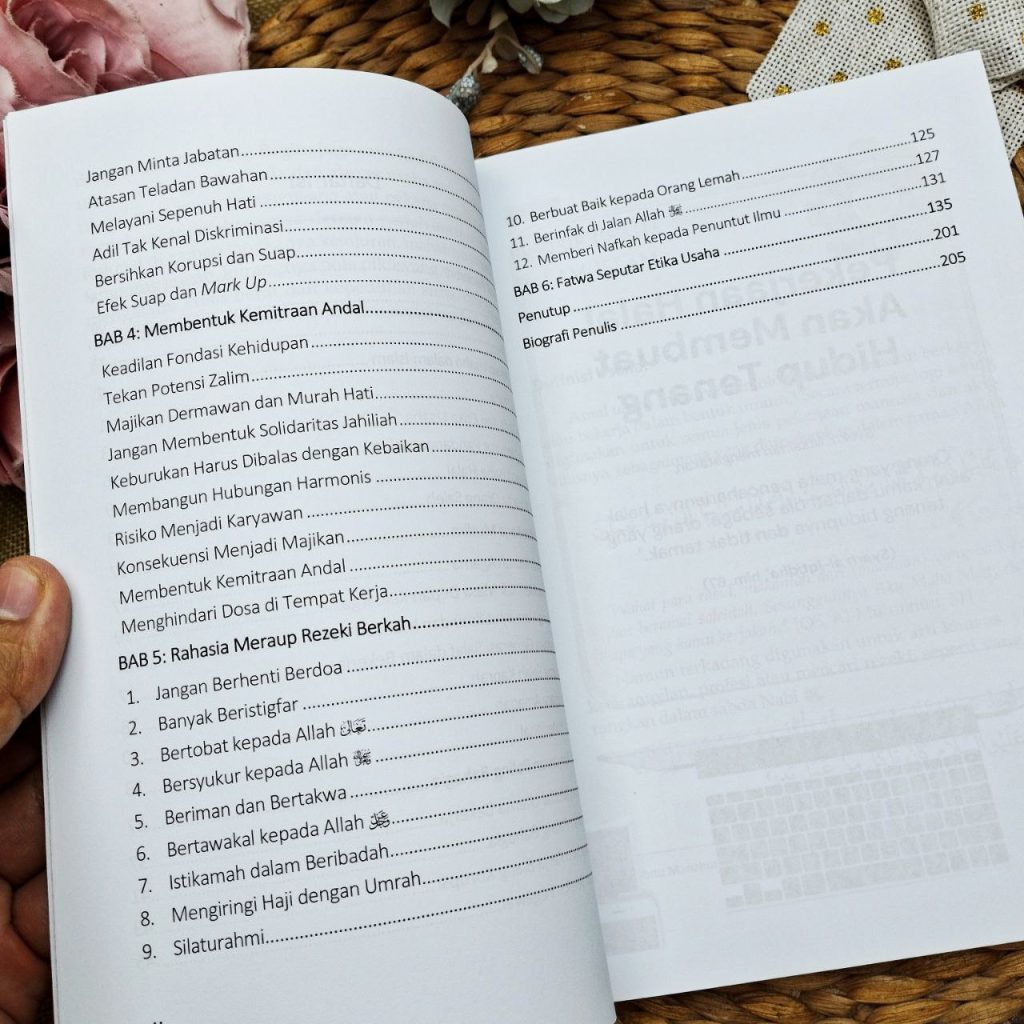 Jangan Minta Jabatan
Atasan Teladan Bawahan
Melayani Sepenuh Hati
Adil Tak Kenal Diskriminasi
Bersihkan Korupsi dan Suap
Efek Suap dan Mark Up
BAB 4: Membentuk Kemitraan Andal
Keadilan Fondasi Kehidupan
Tekan Potensi Zalim
Majikan Dermawan dan Murah Hati
Jangan Membentuk Solidaritas Jahiliah
Keburukan Harus Dibalas dengan Kebaikan
Membangun Hubungan Harmonis
Risiko Menjadi Karyawan
Konsekuensi Menjadi Majikan
Membentuk Kemitraan Andal
Menghindari Dosa di Tempat Kerja
BAB 5: Rahasia Meraup Rezeki Berkah
1. Jangan Berhenti Berdoa
2. Banyak Beristigfar
3. Bertobat kepada Allah
4. Bersyukur kepada Allah
5. Beriman dan Bertakwa
6. Bertawakal kepada Allah
7. Istikamah dalam Beribadah
8. Mengiringi Haji dengan Umrah
9. Silaturahmi
10. Berbuat Baik kepada Orang Lemah 125
11. Berinfak di Jalan Allah 127
12. Memberi Nafkah kepada Penuntut Ilmu 131
BAB 6: Fatwa Seputar Etika Usaha 135
Penutup 201
Biografi Penulis 205